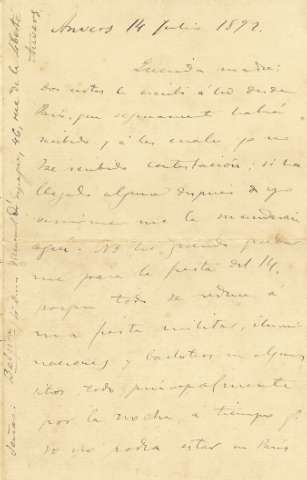 Anvers 14 Julio 1892.
Querida madre:
Dos cartas le escribí á Vd desde
París, que seguramente habrá
recibido, y á las cuales yo no
he recibido contestación; si ha
llegado alguna después de yo
me la mandarán
aquí. No he querido quedar
me para la fiesta del 14,
porque todo se reduce á
una fiesta militar, ilumi
naciones y bailoteos en algunos
sitios, todo principalmente
por la noche, a tiempo q.
yo no podía estar en París
Señas:
46, rue de la
Anvers